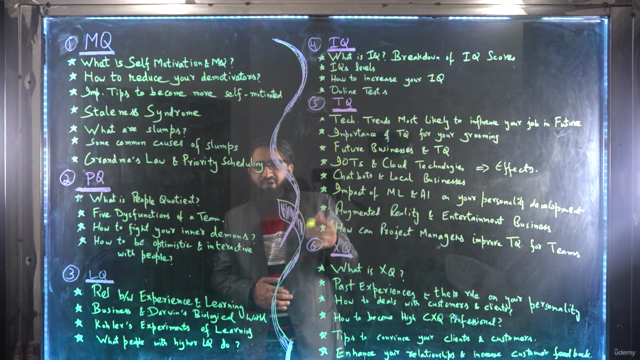 ① MQ
★ What is Self Motivation & MQ?
★ How to reduce your demotivators?
★ Imp. Tips to become more self-motivated
★ Staleness Syndrome
★ What are slumps?
★ Some common causes of slumps
★ Grandma's Law & Priority Scheduling
② PQ
★ What is People Quotient?
★ Five Dysfunctions of a Team.
★ How to fight your inner demons?
★ How to be optimistic & interactive
with people?
③ LQ
★ Rel b/w Experience & Learning
★ Business & Darwin's Biological World
★ Kohler's Experiments of Learning
★ What people with higher LQ do?
④ IQ
★ What is IQ? Breakdown of IQ Scores
★ IQs levels
★ How to increase your IQ
★ Online Tests
⑤ TQ
★ Tech. Trends Most likely to influence your job in Future
★ Importance of TQ for your grooming
★ Future Businesses & TQ
★ IOTs & Cloud Technologies ⇒ Effects.
★ Chatbots & Local Businesses
★ Impact of ML & AI on your personality development
★ Augmented Reality & Entertainment Business
★ How can Project Managers improve TQ for Teams
⑥ XQ
★ What is XQ?
★ Past Experiences & their role on your personality
★ How to deals with customers & clients?
★ How to become High CXQ Professional?
★ Tips to convince your clients & customers.
★ Enhance your relationships & increase customer feedback
ûdemy